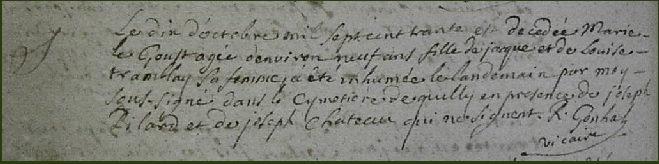 Le dix d'octobre mil sept cent trante est decedée Marie
le Goust agée d'environ neuf ans fille de jacque et de Louise
tramblay sa femme, a été inhumée le landemain par moy
sous-signé dans le Cymetiere de quilly en presence de joseph
Pilard et de joseph Chateau qui ne signent. R. Gonhay
vicaire